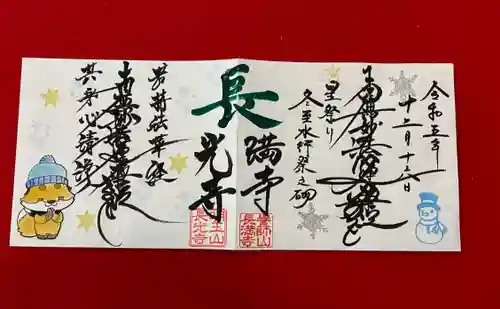 令和五年
十二月十六日
南無妙法蓮華経
星祭り
冬至水行祭之砌
長
満寺
光寺
若持法華経
南無妙法蓮華経
其身心清浄
山
長満寺
山
長光寺